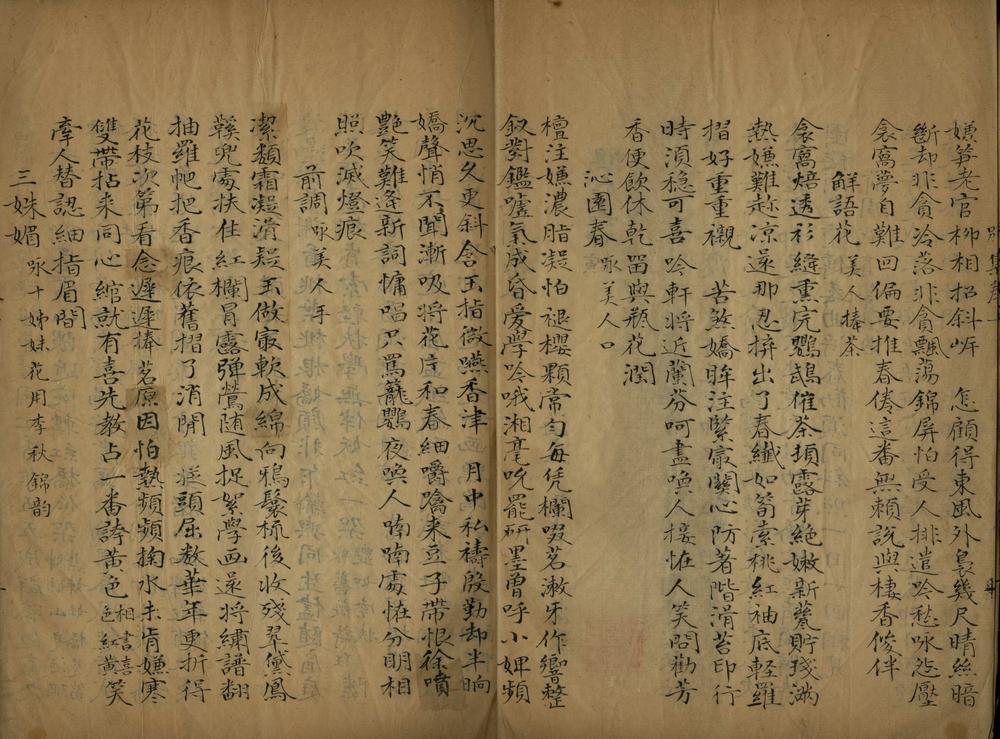 嫌筝老官柳相招斜㟁　怎顧得東風外裊幾尺晴絲暗
斷却非貪冷落非貪飄蕩錦屏怕受人排遣吟愁咏怨壓
衾窩夢自難回偏要推春倦這番無賴說與棲香俊伴
解語花　美人捧茶
衾窩焙透衫縫熏完鸚鵡催茶預露芽絶嫩新甆貯殘滿
熱嫌難趂凉遂那忍拚出了春纖如筍索桃紅袖底輕羅
摺好重重襯　苦煞嬌眸注緊最關心防著階滑苔印行
時須穩可喜吟軒將近蘭芬呵盡喚人接恠人笑問勸芳
香便飲休乾留與瓶花潤
沁園春　咏美人口
檀注嫌濃脂凝怕褪櫻顆常勻每凭欄啜茗漱牙作響整
釵對鑑噓氣成昏愛學吟哦湘毫吮罷研墨曾呼小婢頻
沉思久更斜含玉指微嚥香津　月中私禱殷勤却半晌
嬌聲悄不聞漸吸將花片和春細嚼噙来豆子帶恨徐噴
艷笑難逢新詞慵唱只罵籠鸚夜喚人喃喃處恠分明相
照吹滅燈痕
前調　咏美人手
潔類霜凝滑疑玉做最軟成綿向鴉鬟梳後收殘翠黛鳳
鞵兜處扶住紅欄冐露彈鶯随風捉絮學画還將繡譜翻
抽羅帊把香痕依舊摺了消閒　莊頭屈数華年更折得
花枝次第看念遲遲捧茗原因怕熱頻頻掬水未肯嫌寒
雙帶拈来同心綰就有喜先教占一番誇黃色相書喜色紅黃笑
牽人替認細指眉間
三姝媚　咏十姊妹花用李秋錦韵